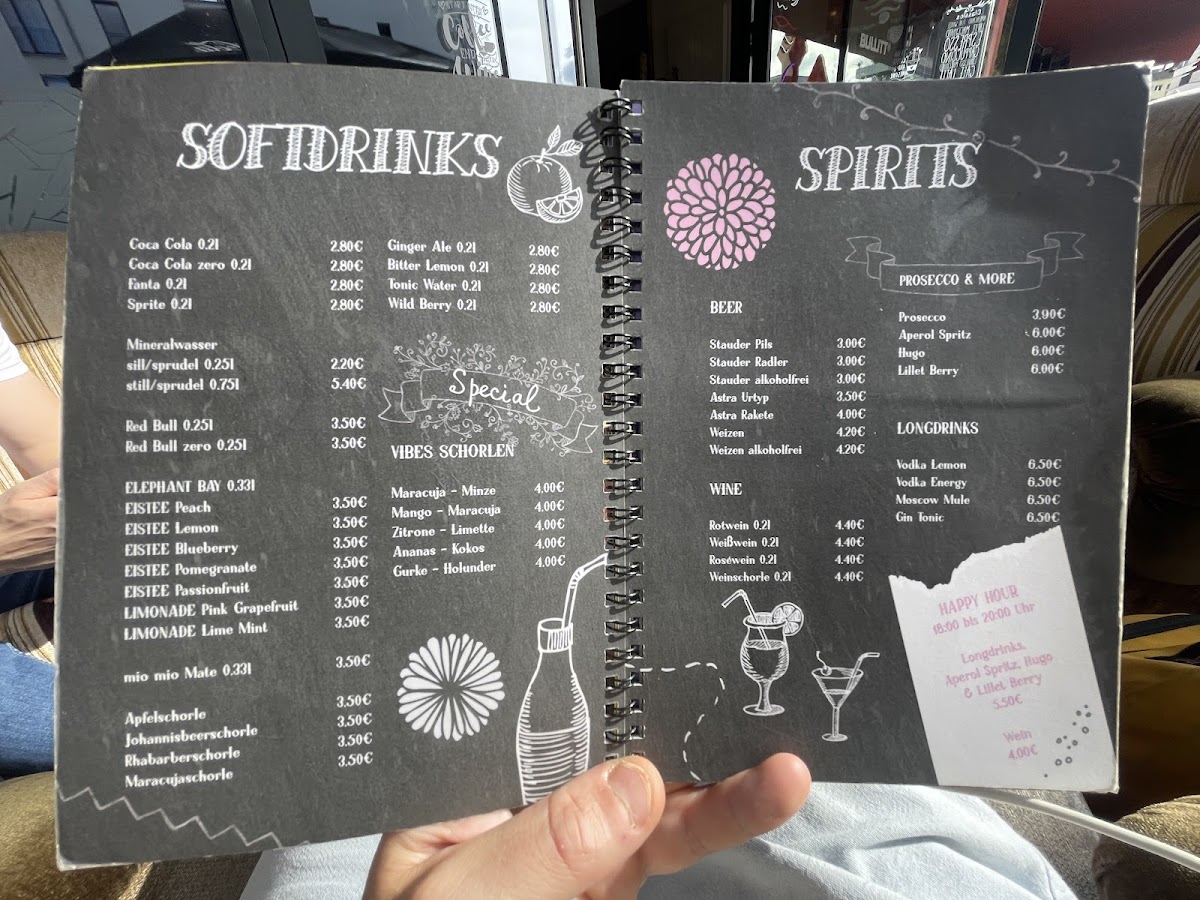 SOFTDRINKS
Coca Cola 0.2l 2.80€
Coca Cola zero 0.2l 2.80€
Fanta 0.2l 2.80€
Sprite 0.2l 2.80€
Mineralwasser
sill/sprudel 0.25l 2.20€
still/sprudel 0.75l 5.40€
Red Bull 0.25l 3.50€
Red Bull zero 0.25l 3.50€
ELEPHANT BAY 0.33l
EISTEE Peach 3.50€
EISTEE Lemon 3.50€
EISTEE Blueberry 3.50€
EISTEE Pomegranate 3.50€
EISTEE Passionfruit 3.50€
LIMONADE Pink Grapefruit 3.50€
LIMONADE Lime Mint 3.50€
mio mio Mate 0.33l 3.50€
Apfelschorle 3.50€
Johannisbeerschorle 3.50€
Rhabarberschorle 3.50€
Maracujaschorle 3.50€
Ginger Ale 0.2l 2.80€
Bitter Lemon 0.2l 2.80€
Tonic Water 0.2l 2.80€
Wild Berry 0.2l 2.80€
Special
VIBES SCHORLEN
Maracuja - Minze 4.00€
Mango - Maracuja 4.00€
Zitrone - Limette 4.00€
Ananas - Kokos 4.00€
Gurke - Holunder 4.00€
SPIRITS
BEER
Stauder Pils 3.00€
Stauder Radler 3.00€
Stauder alkoholfrei 3.00€
Astra Urtyp 3.50€
Astra Rakete 4.00€
Weizen 4.20€
Weizen alkoholfrei 4.20€
WINE
Rotwein 0.2l 4.40€
Weißwein 0.2l 4.40€
Roséwein 0.2l 4.40€
Weinschorle 0.2l 4.40€
PROSECCO & MORE
Prosecco 3.90€
Aperol Spritz 6.00€
Hugo 6.00€
Lillet Berry 6.00€
LONGDRINKS
Vodka Lemon 6.50€
Vodka Energy 6.50€
Moscow Mule 6.50€
Gin Tonic 6.50€
HAPPY HOUR
18:00 bis 20:00 Uhr
Longdrinks,
Aperol Spritz, Hugo
& Lillet Berry
5.50€
Wein
4.00€